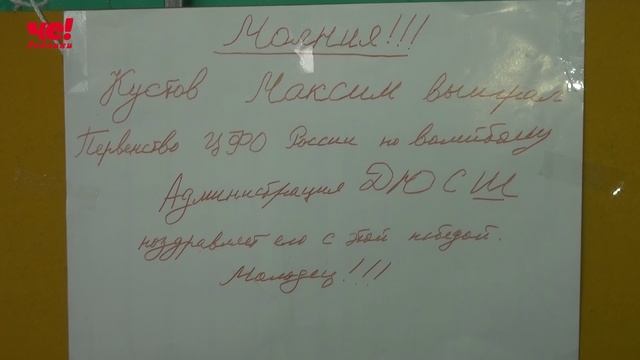 ЧЕ!
Молния!!!
Кустов Максим выиграл
Первенство ЦФО России по волейболу
Администрация ДЮСШ
поздравляет его с этой победой.
Молодец!!!